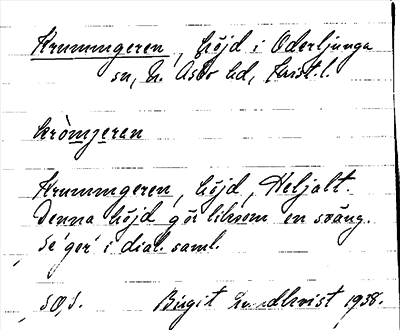 Krummgeren, höjd i Oderljunga
sn, N. Åsbo hd, Krist. l.
kròmjeren
Krummgeren, höjd, Heljalt.
Denna höjd gör liksom en sväng.
Se 'ger' i dial. saml.
SO, S. Birgit Lindkvist 1938.